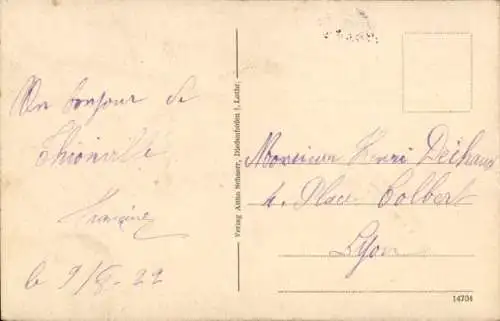 Un bonjour de
Thionville
Francine
le 9/8-22
Verlag Anton Schuerr, Diedenhofen i. Lothr.
Monsieur Henri Dechaux
4. Place Colbert
Lyon
14704